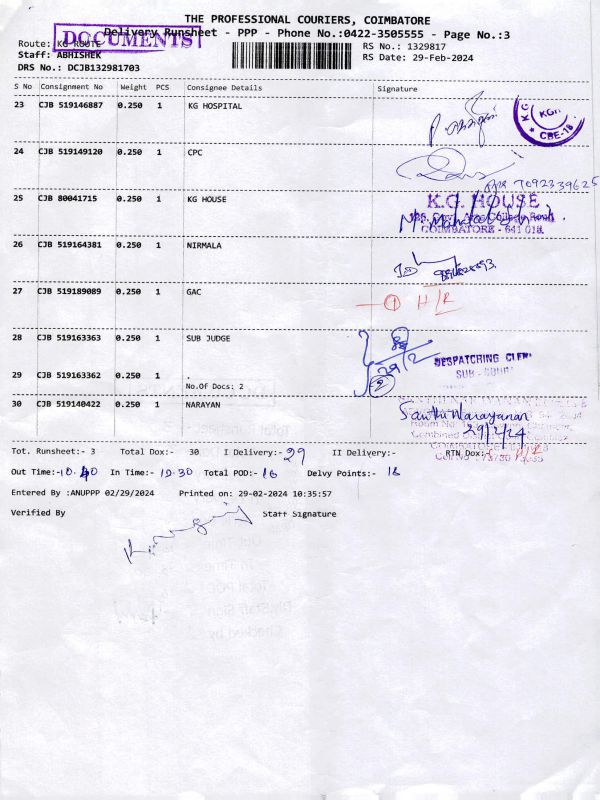 THE PROFESSIONAL COURIERS, COIMBATORE
Delivery Runsheet - PPP - Phone No.:0422-3505555 - Page No.:3
DOCUMENTS
Route: KG-ROUTE
RS No.: 1329817
Staff: ABHISHEK
RS Date: 29-Feb-2024
DRS No.: DCJB132981703
S No Consignment No Weight PCS Consignee Details Signature
23 CJB 519146887 0.250 1 KG HOSPITAL
KGH
CBE-18
24 CJB 519149120 0.250 1 CPC
7092339625
25 CJB 80041715 0.250 1 KG HOUSE
K.G. HOUSE
COIMBATORE - 641 018
26 CJB 519164381 0.250 1 NIRMALA
27 CJB 519189089 0.250 1 GAC
1 H/R
28 CJB 519163363 0.250 1 SUB JUDGE
29/2
DESPATCHING CLERK
29 CJB 519163362 0.250 1 .
No.Of Docs: 2
2
30 CJB 519140422 0.250 1 NARAYAN
Santhi Narayanan
29/2/24
Tot. Runsheet:- 3 Total Dox:- 30 I Delivery:- 29 II Delivery:- RTN Dox:-
Out Time:- 10.40 In Time:- 19.30 Total POD:- 16 Delvy Points:- 16
Entered By :ANUPPP 02/29/2024 Printed on: 29-02-2024 10:35:57
Verified By Staff Signature